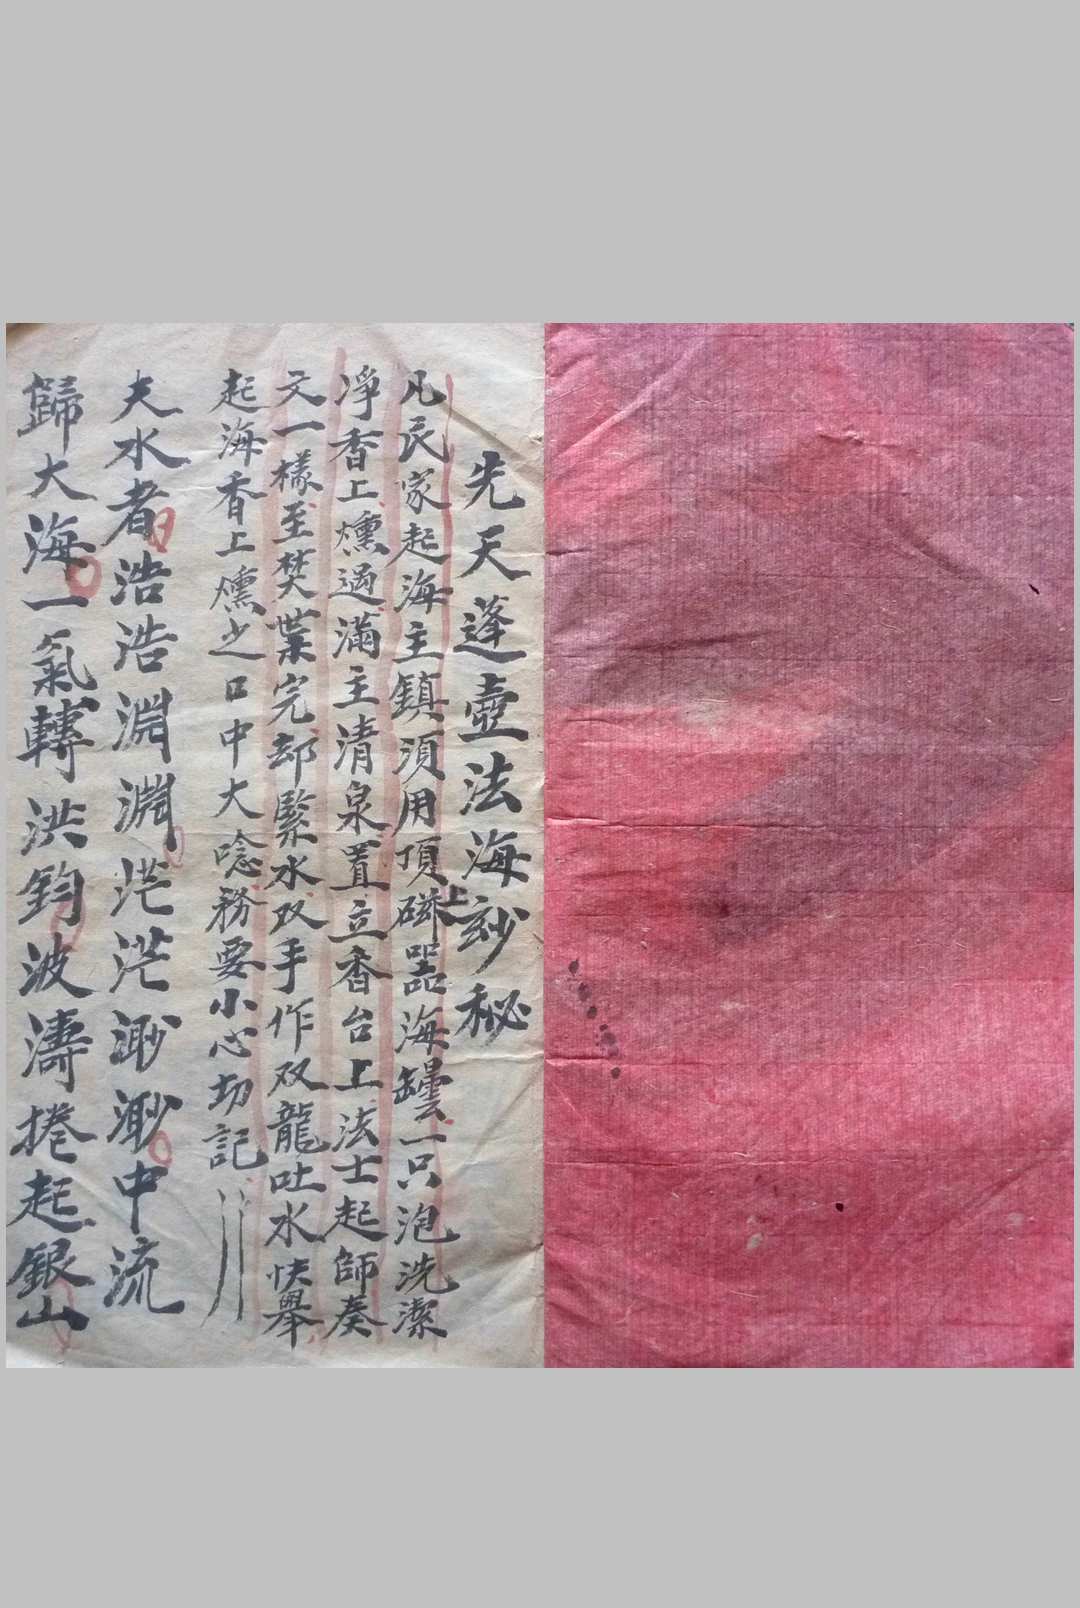 先天蓬壺法海玅秘
凡民家起海主鎮須用頂上磁器海罎一只泡洗潔
凈香上燻過滿主清泉置立香台上法士起師奏
文一樣至焚業完却緊水双手作双龍吐水快舉
起海香上燻之口中大唸務要小心切記
夫水者浩浩淵淵茫茫渺渺中流
歸大海一氣轉洪鈞波濤捲起銀山